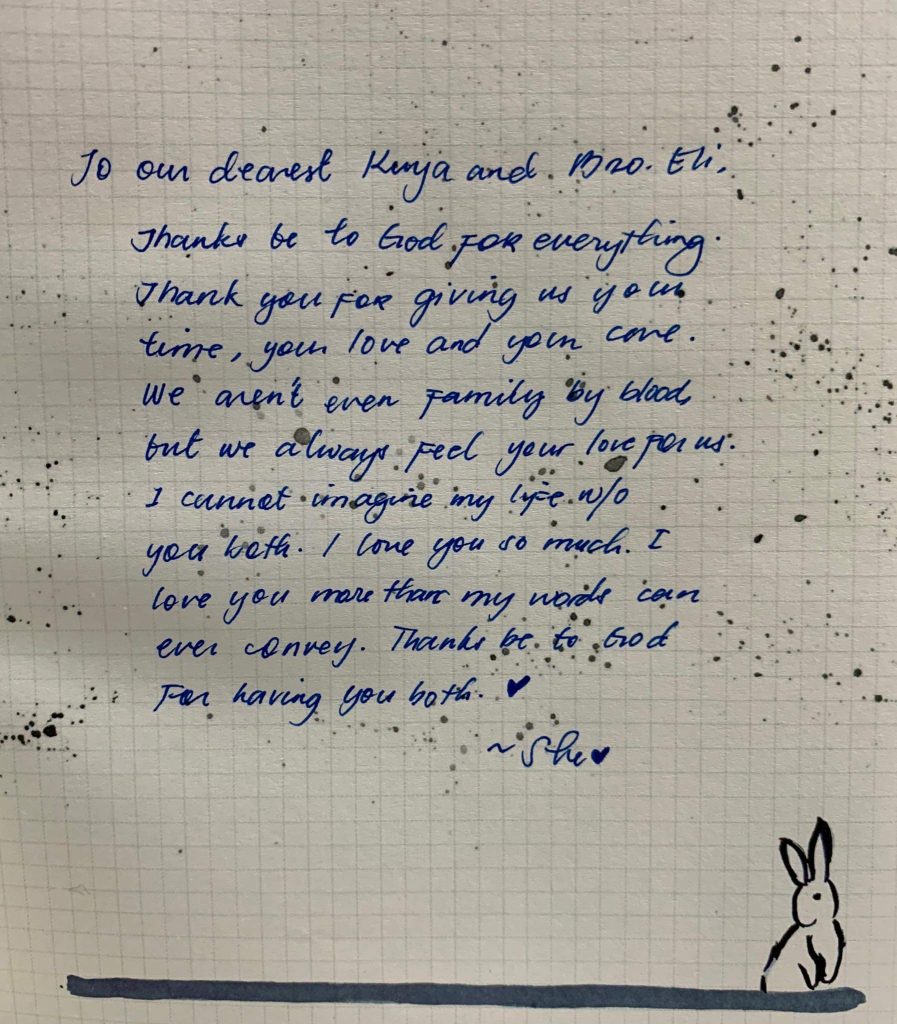 To our dearest Kuya and Bro. Eli,
Thanks be to God for everything.
Thank you for giving us your
time, your love and your care.
We aren't even family by blood,
but we always feel your love for us.
I cannot imagine my life w/o
you both. I love you so much. I
love you more than my words can
ever convey. Thanks be to God
For having you both. ♥
~ She ♥